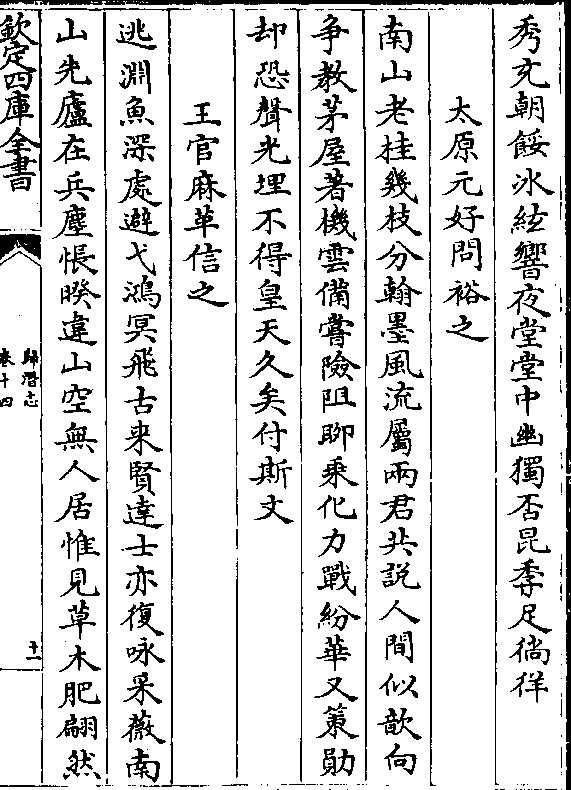 秀充朝餒冰絃響夜堂堂中幽獨否昆季足徜徉
太原元好問裕之
南山老桂幾枝分翰墨風流屬兩君共說人間似歆向
争教茅屋著機雲備嘗險阻聊乘化力戰紛華又策勛
却恐聲光埋不得皇天久矣付斯文
王官麻革信之
逃淵魚深處避弋鴻冥飛古来賢達士亦復咏采薇南
山先廬在兵塵悵暌違山空無人居惟見草木肥翩然
欽定四庫全書
歸潛志
卷十四
十一